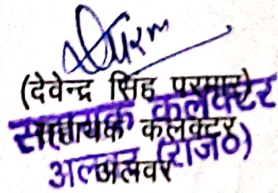 (देवेन्द्र सिंह परमार)
सहायक कलेक्टर
सहायक कलेक्टर
अलवर (राज०)
अलवर